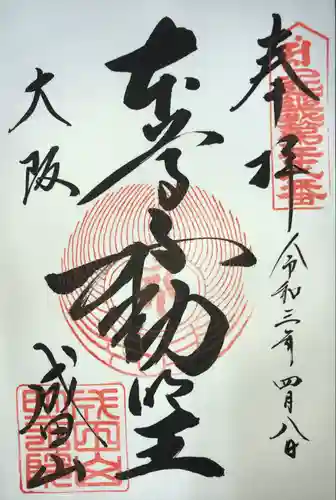 奉拝
令和三年四月八日
本尊不動明王
大阪
成田山